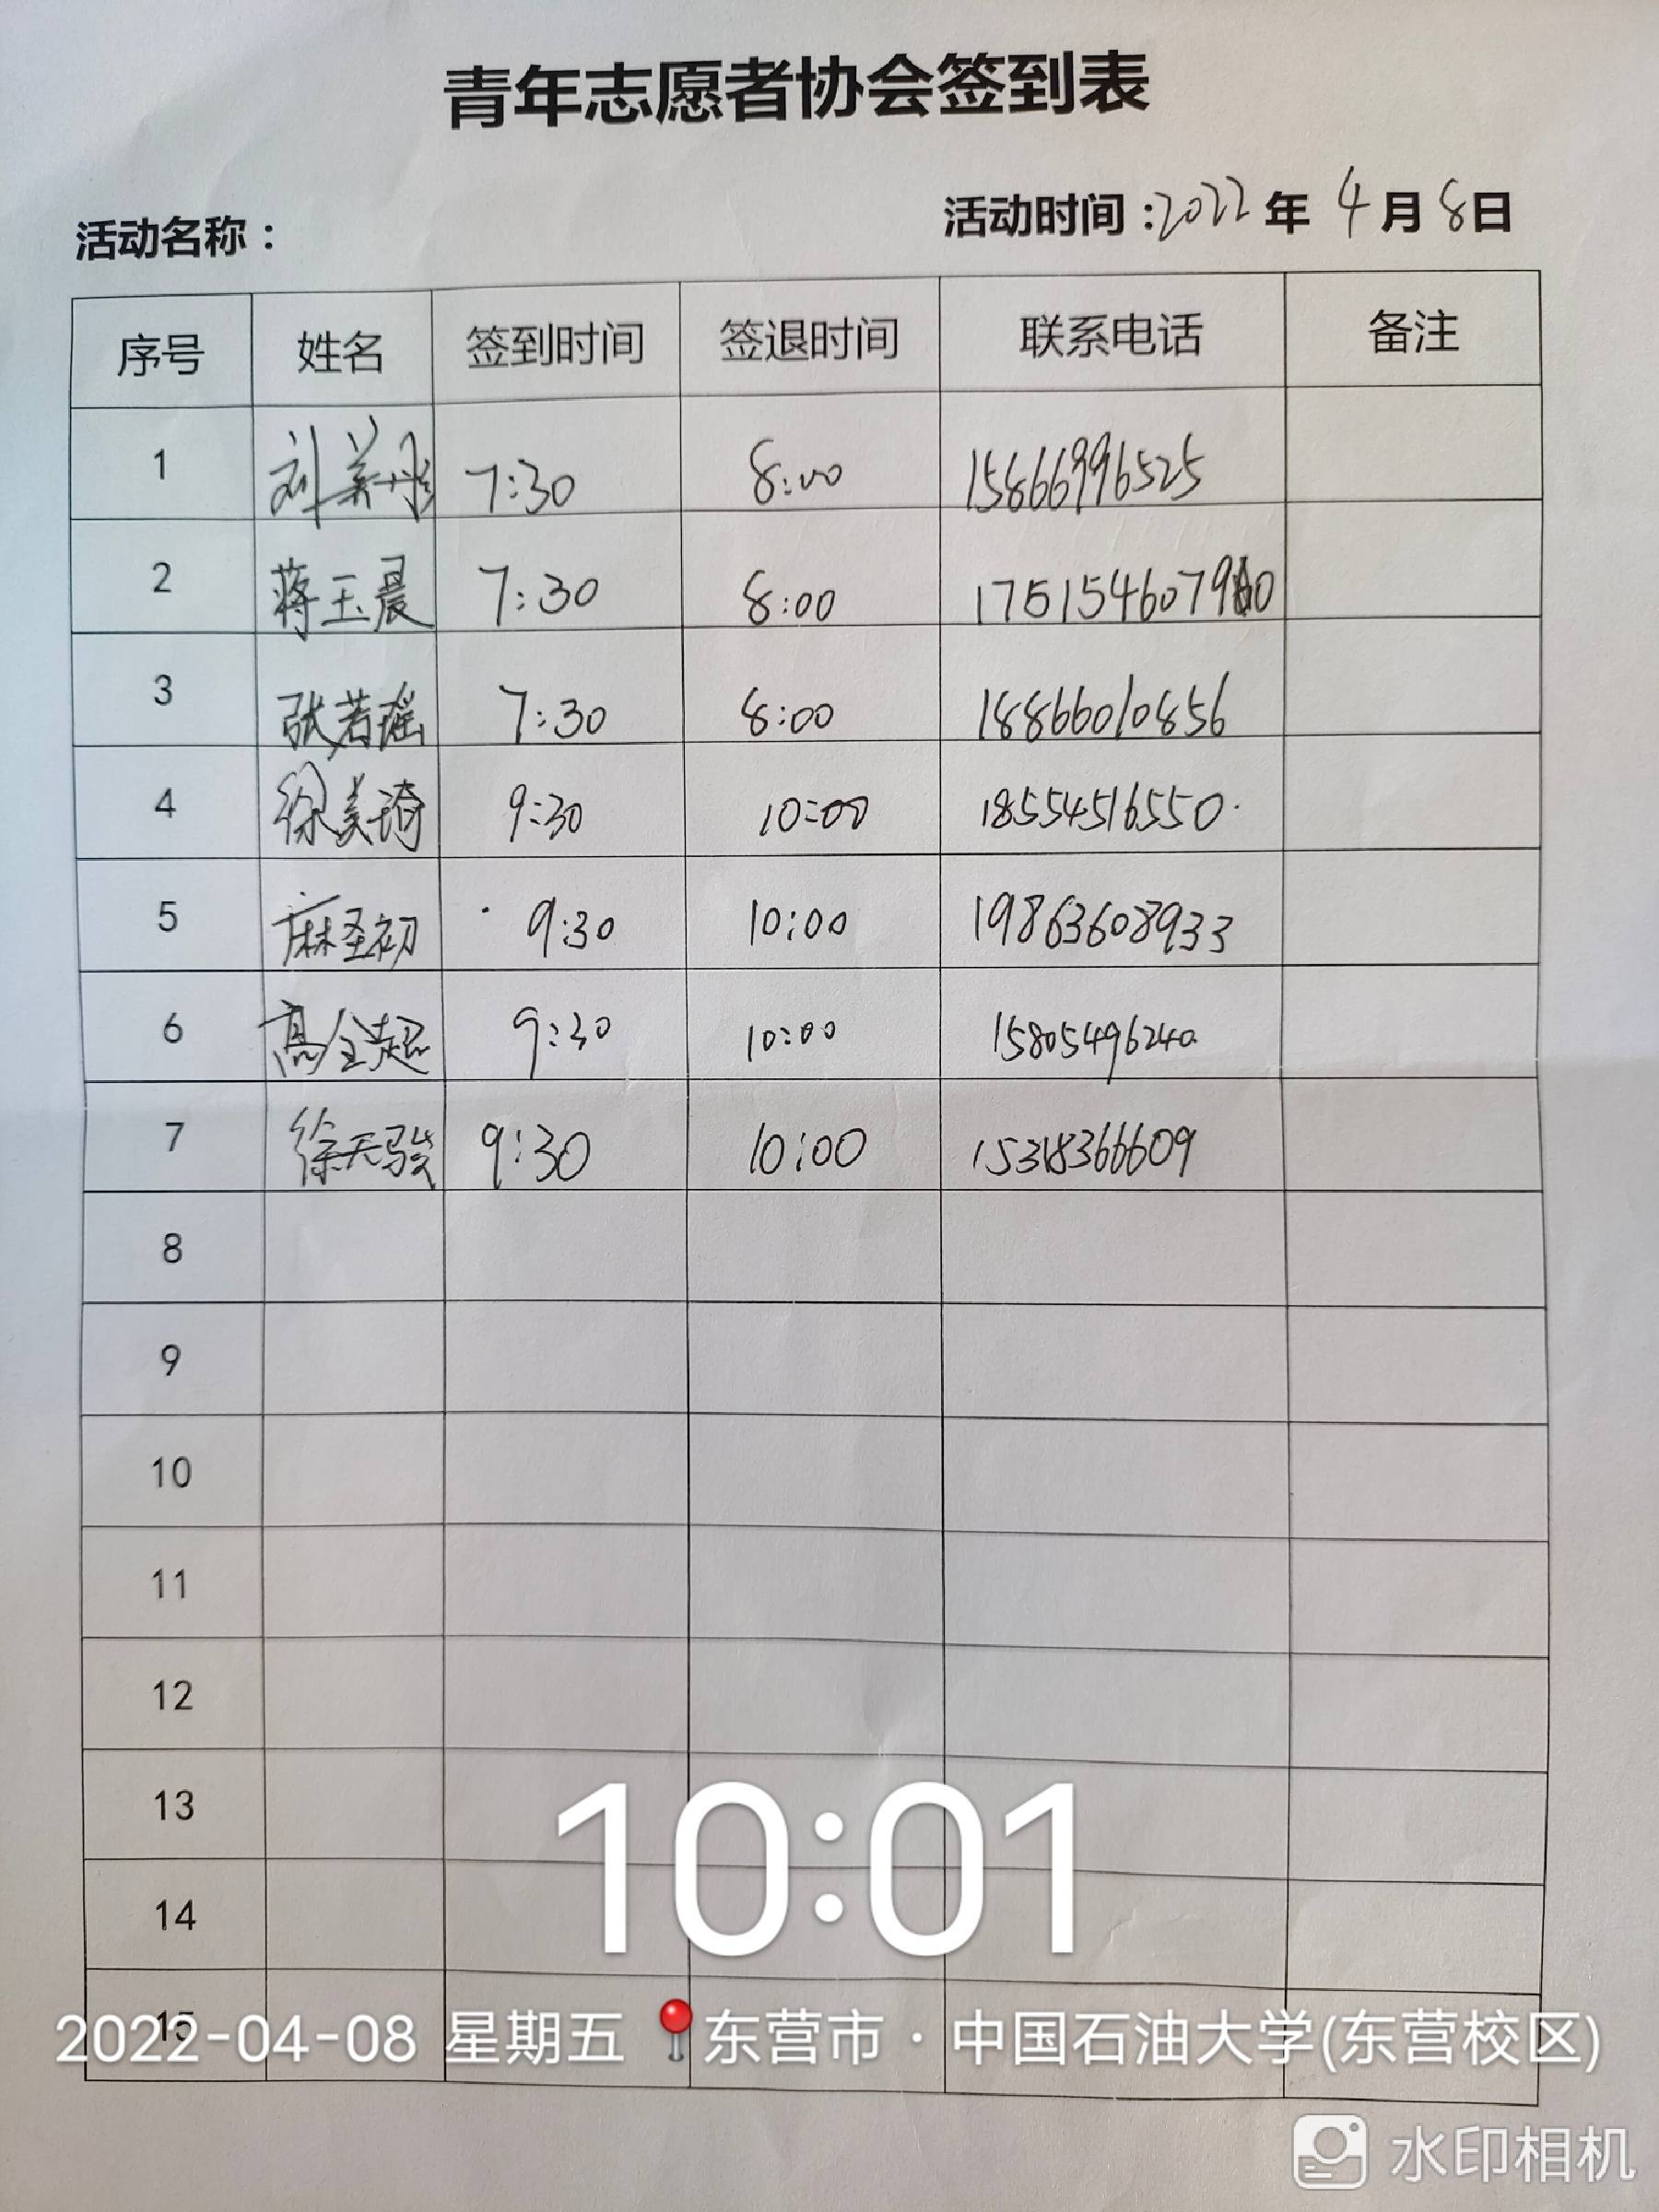 青年志愿者协会签到表
活动名称： 活动时间：2022年 4月8日
序号 姓名 签到时间 签退时间 联系电话 备注
1 刘美彤 7:30 8:00 15866996525
2 蒋玉晨 7:30 8:00
3 张若瑶 7:30 8:00 18866010856
4 徐美琦 9:30 10:00 18554516550
5 麻圣初 9:30 10:00 19863608933
6 高全超 9:30 10:00 15805496240
7 徐天骏 9:30 10:00 15318366609
8
9
10
11
12
13
14
15
10:01
2022-04-08 星期五 东营市·中国石油大学(东营校区)
水印相机